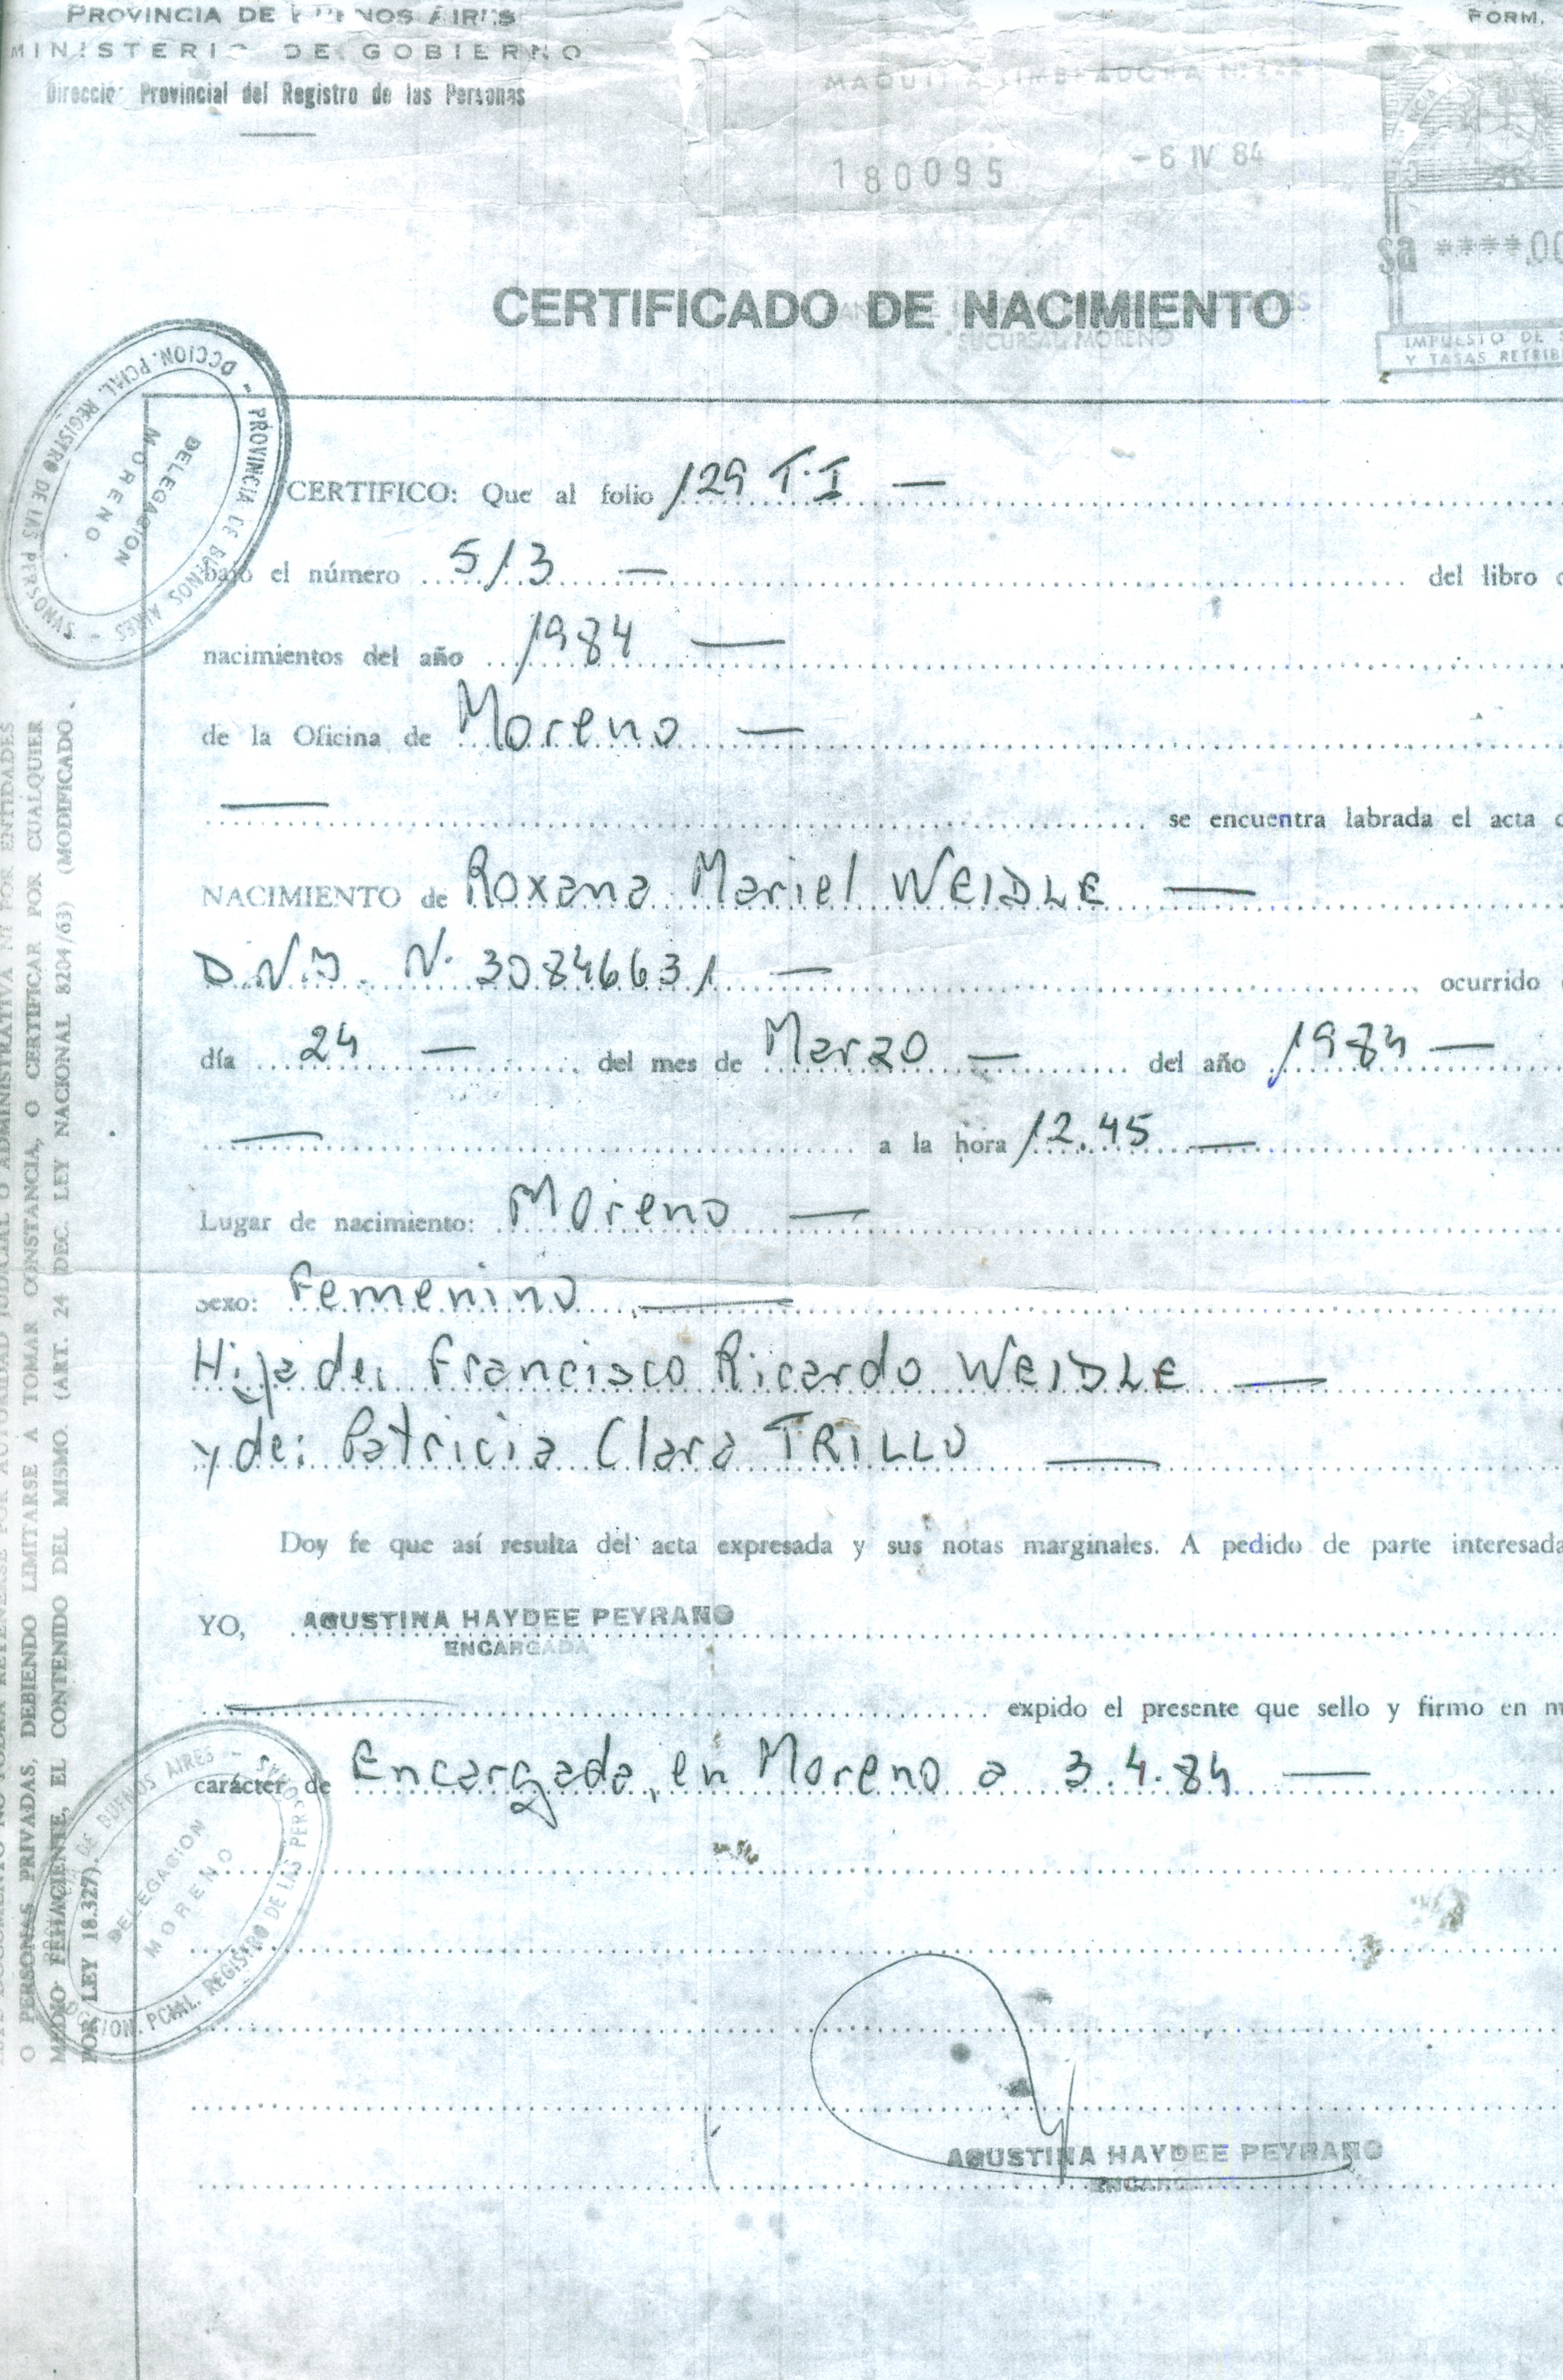 PROVINCIA DE BUENOS AIRES
MINISTERIO DE GOBIERNO
Dirección Provincial del Registro de las Personas
FORM.
MAQUINA TIMBRADORA
180095 -6 IV 84
****.00
CERTIFICADO DE NACIMIENTO
SUCURSAL MORENO
IMPUESTO DE
Y TASAS RETRIB
PROVINCIA DE BUENOS AIRES - DCCION. PCIAL. REGISTRO DE LAS PERSONAS -
DELEGACION
MORENO
CERTIFICO: Que al folio 129 T.I —
bajo el número 513 — del libro
nacimientos del año 1984 —
de la Oficina de Moreno —
— se encuentra labrada el acta
NACIMIENTO de Roxana Mariel WEIDLE —
D.N.I. N. 30846631 — ocurrido
día 24 — del mes de Marzo — del año 1984 —
— a la hora 12.45 —
Lugar de nacimiento: Moreno —
Sexo: Femenino —
Hija de: Francisco Ricardo WEIDLE —
y de: Patricia Clara TRILLO —
Doy fe que así resulta del acta expresada y sus notas marginales. A pedido de parte interesada
YO, AGUSTINA HAYDEE PEYRANO
ENCARGADA
— expido el presente que sello y firmo en
carácter de Encargada, en Moreno a 3.4.84 —
DE BUENOS AIRES - DCCION. PCIAL. REGISTRO DE LAS PERSONAS
DELEGACION
MORENO
AGUSTINA HAYDEE PEYRANO
ENCARG
O PERSONAS PRIVADAS, DEBIENDO LIMITARSE A TOMAR CONSTANCIA, O CERTIFICAR POR CUALQUIER
MEDIO FEHACIENTE, EL CONTENIDO DEL MISMO. (ART. 24 DEC. LEY NACIONAL 8204/63) (MODIFICADO
POR LEY 18.327).